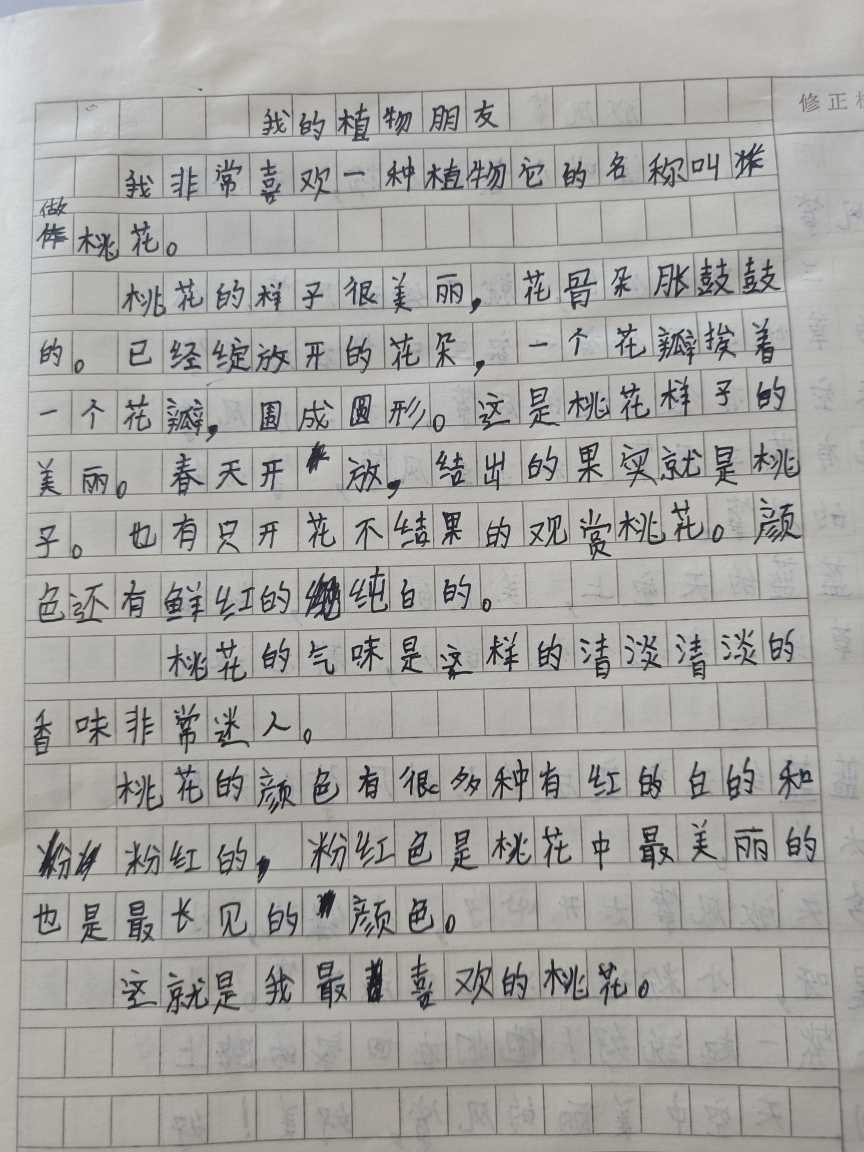 修正
我的植物朋友
我非常喜欢一种植物它的名称叫
做
桃花。
桃花的样子很美丽，花骨朵胀鼓鼓
的。已经绽放开的花朵，一个花瓣挨着
一个花瓣，围成圆形。这是桃花样子的
美丽。春天开放，结出的果实就是桃
子。也有只开花不结果的观赏桃花。颜
色还有鲜红的纯白的。
桃花的气味是这样的清淡清淡的
香味非常迷人。
桃花的颜色有很多种有红的白的和
粉红的，粉红色是桃花中最美丽的
也是最长见的颜色。
这就是我最喜欢的桃花。